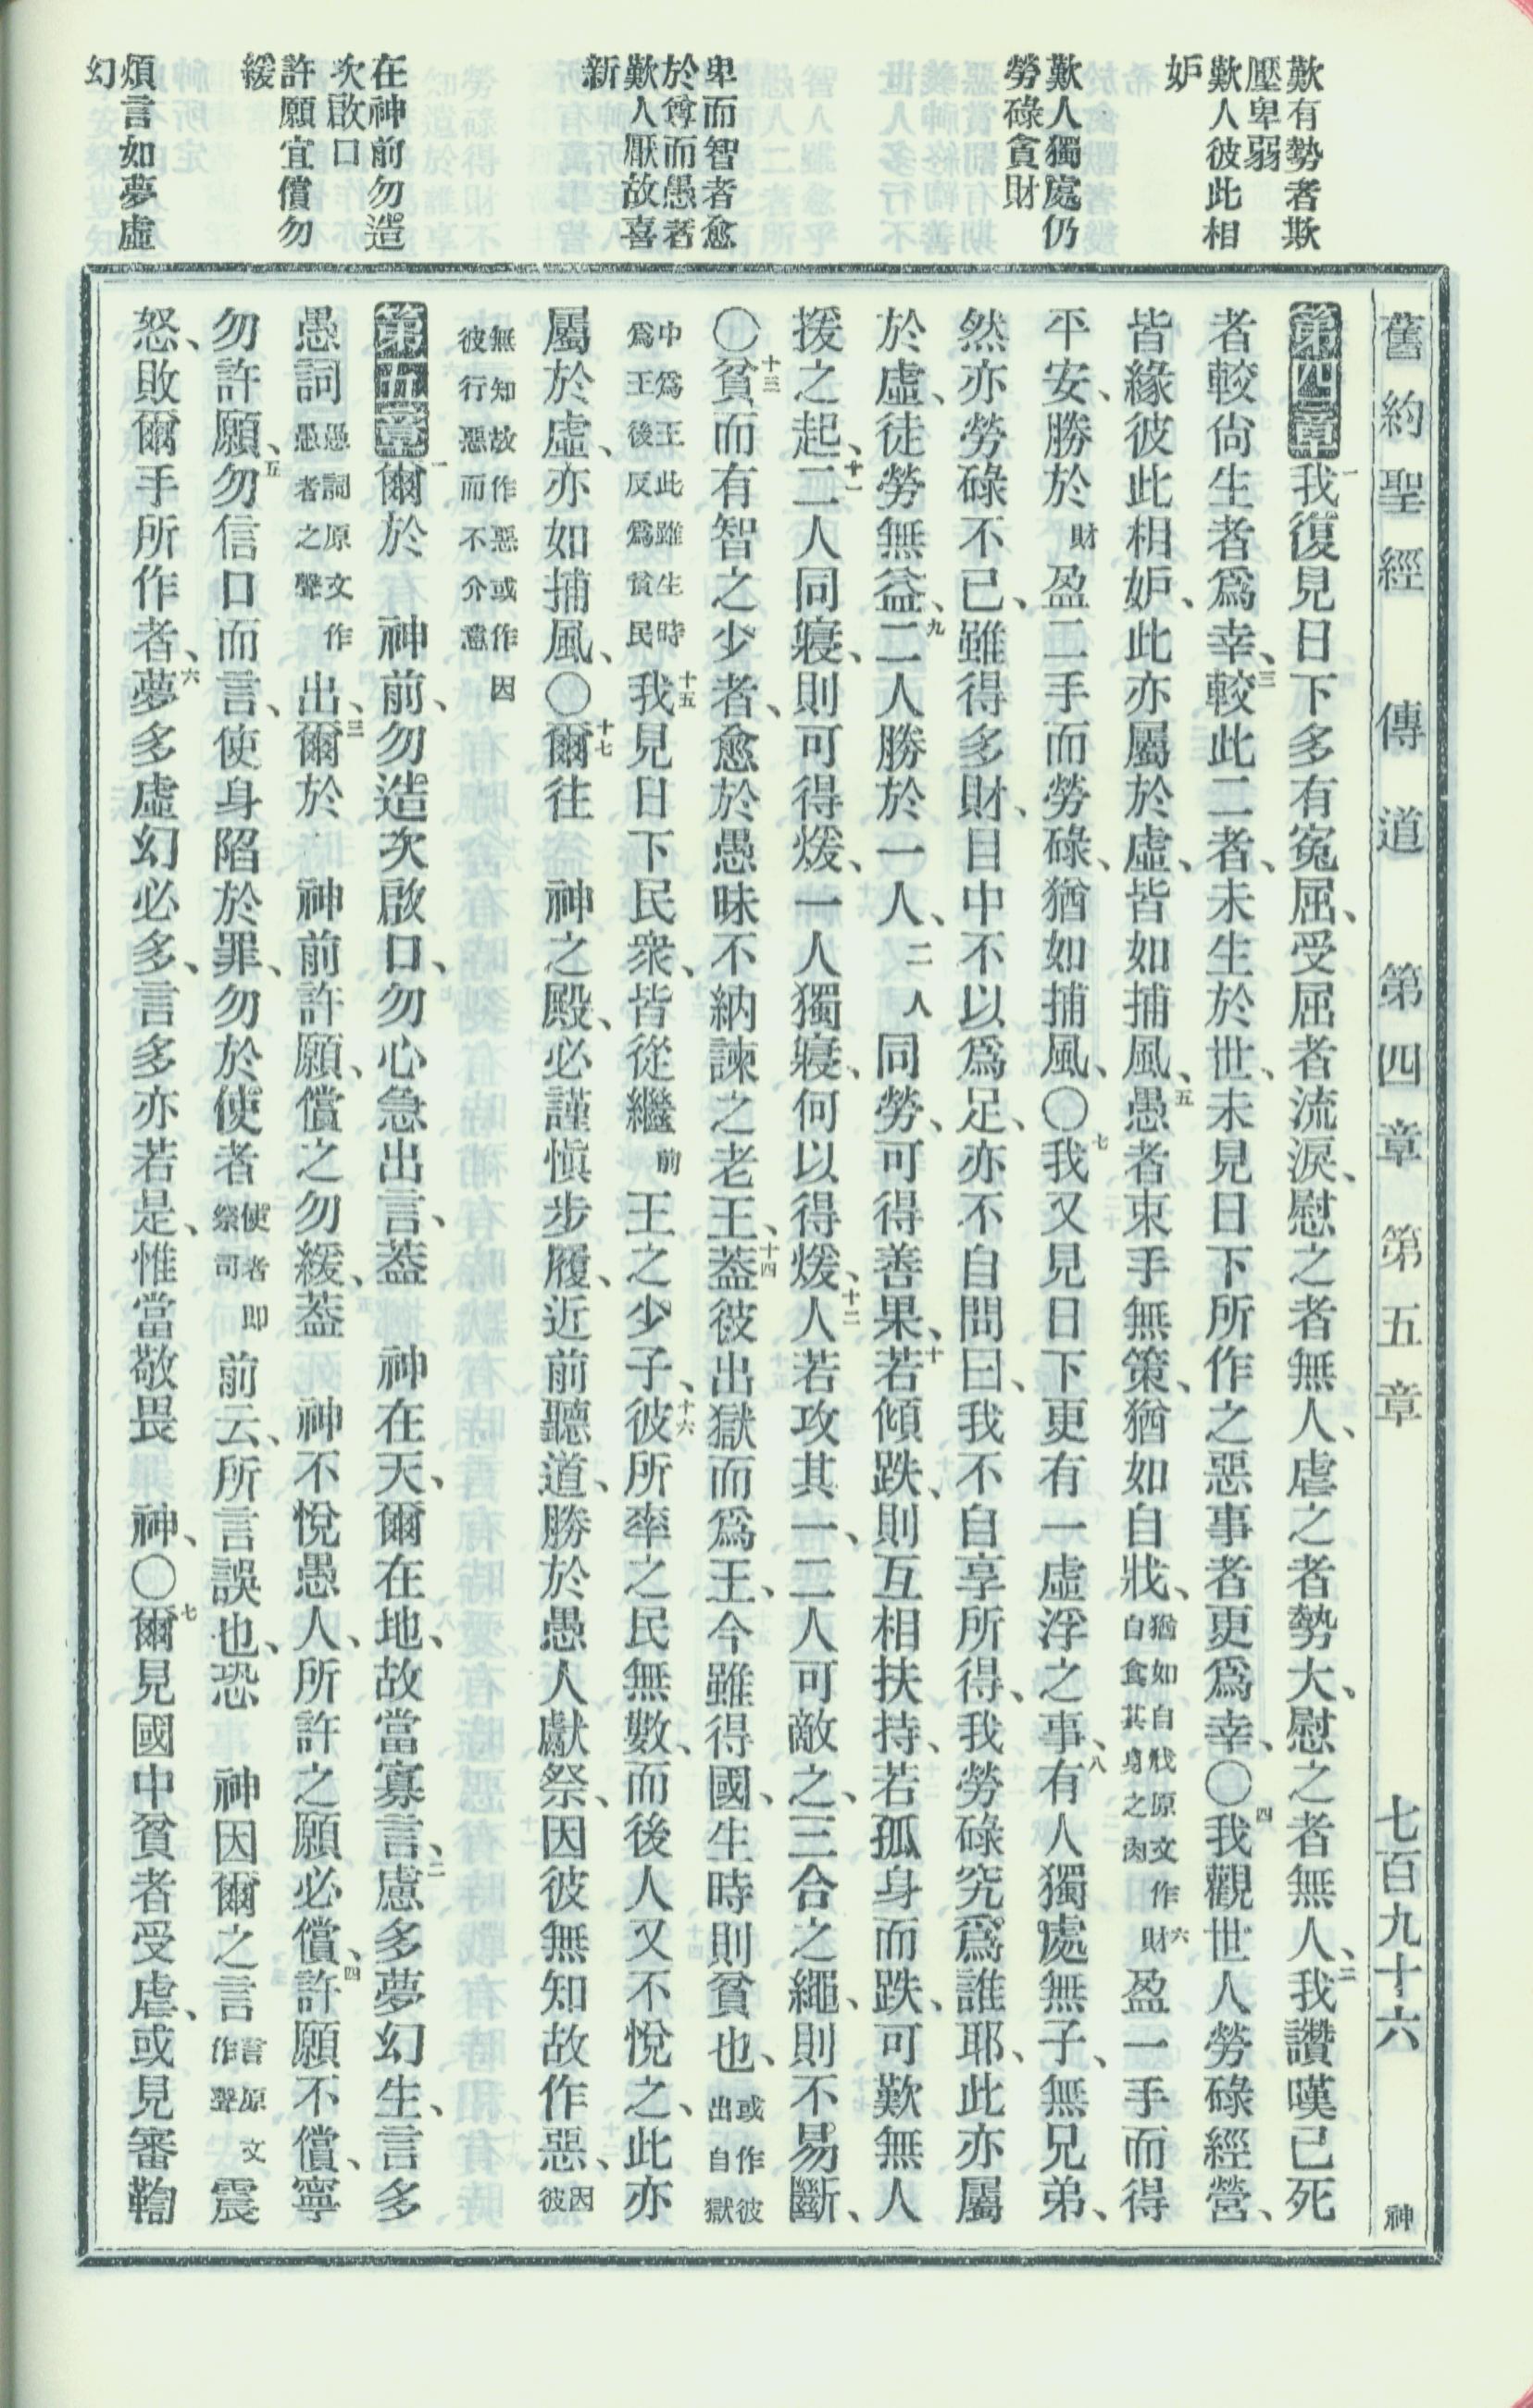 舊約聖經 傳道 第四章 第五章 七百九十六 神
歎有勢者欺
壓卑弱
歎人彼此相
妒
歎人獨處仍
勞碌貪財
卑而智者愈
於尊而愚者
歎人厭故喜
新
在神前勿造
次啟口
許願宜償勿
緩
煩言如夢虛
幻
第四章一我復見日下多有冤屈、受屈者流淚、慰之者無人、虐之者勢大、慰之者無人、二我讚嘆已死
者較尙生者爲幸、三較此二者、未生於世、未見日下所作之惡事者更爲幸、〇四我觀世人勞碌經營、
皆緣彼此相妒、此亦屬於虛、皆如捕風、五愚者束手無策、猶如自戕、猶如自戕原文作自食其身之肉六財盈一手而得
平安、勝於財盈二手而勞碌、猶如捕風、〇七我又見日下更有一虛浮之事、八有人獨處無子、無兄弟、
然亦勞碌不已、雖得多財、目中不以爲足、亦不自問曰、我不自享所得、我勞碌究爲誰耶、此亦屬
於虛、徒勞無益、九二人勝於一人、二人同勞、可得善果、十若傾跌、則互相扶持、若孤身而跌、可歎無人
援之起、十一二人同寢、則可得煖、一人獨寢、何以得煖、十二人若攻其一、二人可敵之、三合之繩、則不易斷、
〇十三貧而有智之少者、愈於愚昧不納諫之老王、十四蓋彼出獄而爲王、今雖得國、生時則貧也、或作彼出自獄
中爲王此雖生時爲王後反爲貧民十五我見日下民衆、皆從繼前王之少子、十六彼所率之民無數、而後人又不悅之、此亦
屬於虛、亦如捕風、〇十七爾往 神之殿、必謹愼步履、近前聽道、勝於愚人獻祭、因彼無知故作惡、因彼
無知故作惡或作因彼行惡而不介意
第五章一爾於 神前、勿造次啟口、勿心急出言、蓋 神在天、爾在地、故當寡言、二慮多夢幻生、言多
愚詞愚詞原文作愚者之聲出、三爾於 神前許願、償之勿緩、蓋 神不悅愚人、所許之願必償、四許願不償、寧
勿許願、五勿信口而言、使身陷於罪、勿於使者使者卽祭司前云、所言誤也、恐 神因爾之言言原文作聲震
怒、敗爾手所作者、六夢多虛幻必多、言多亦若是、惟當敬畏 神、〇七爾見國中貧者受虐、或見審鞫